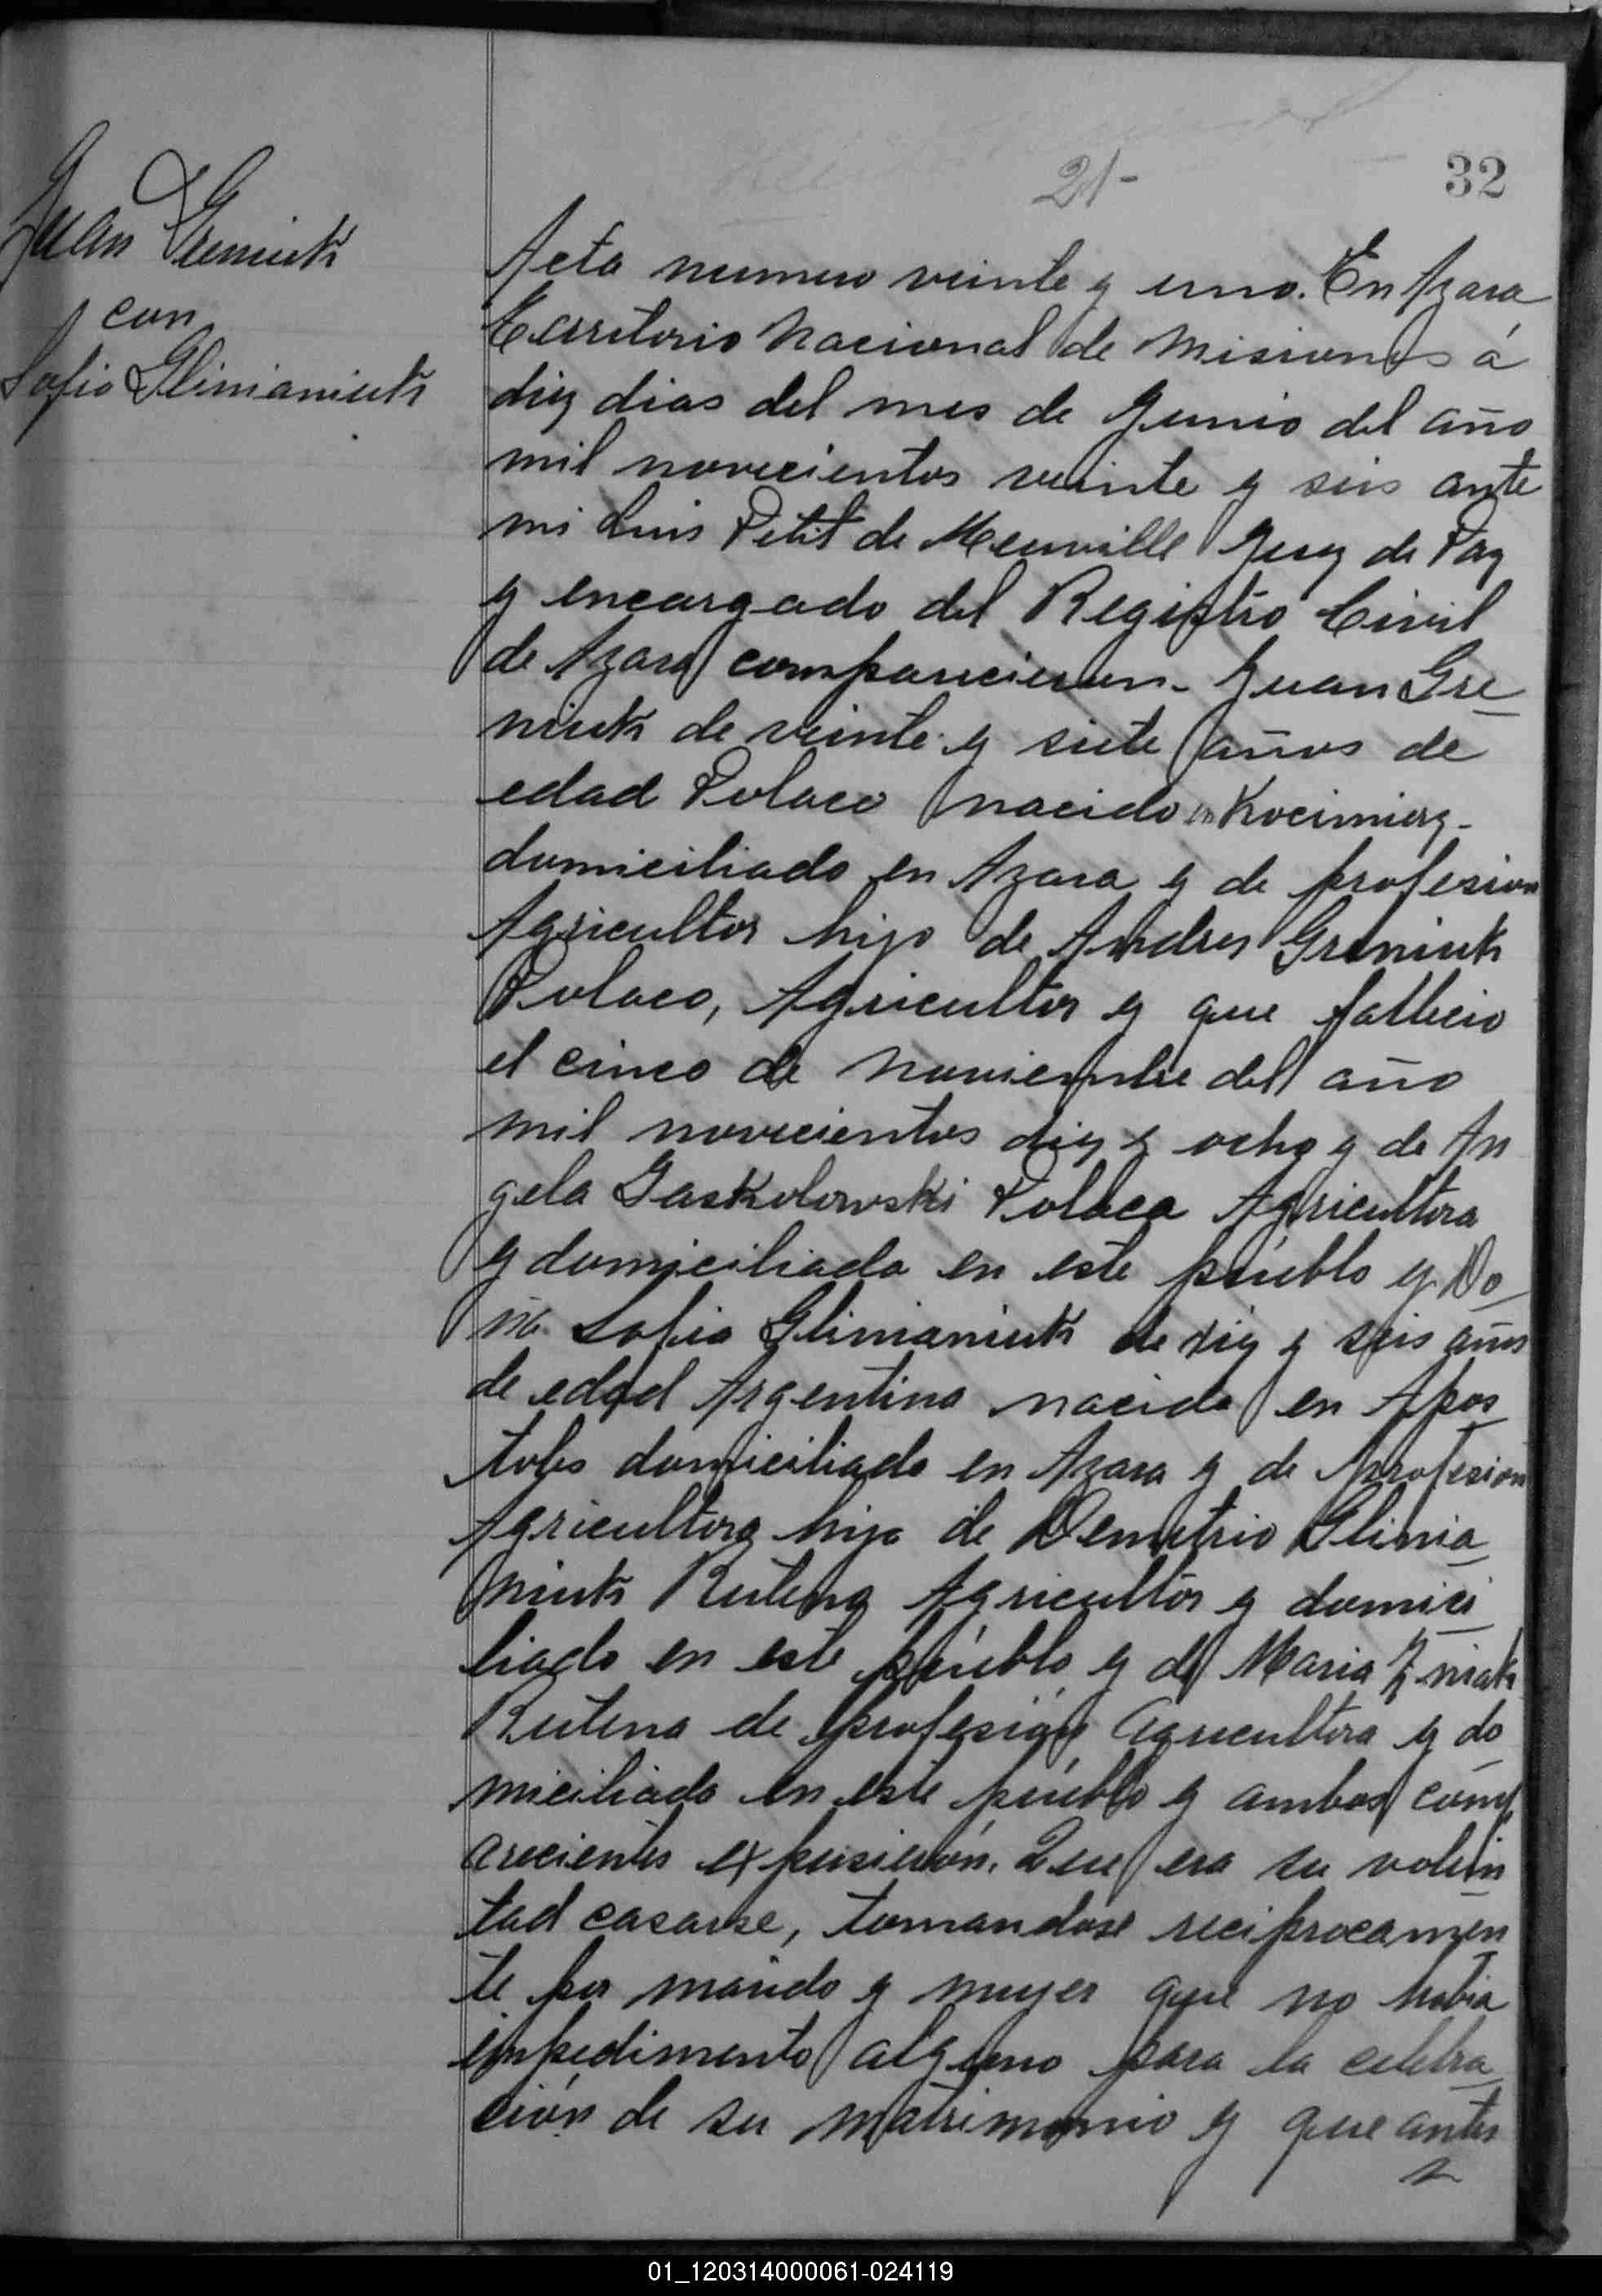 32
21-
Juan Greniuk
con
Sofia Glimaniuk
Acta numero veinte y uno. En Azara
Territorio Nacional de Misiones á
diez dias del mes de Junio del año
mil novecientos veinte y seis ante
mi Luis Petit de Meurville Juez de Paz
y encargado del Registro Civil
de Azara comparecieron - Juan Gre
niuk de veinte y siete años de
edad Polaco nacido en Kocimierz -
domiciliado en Azara y de profesion
Agricultor hijo de Andres Greniuk
Polaco, Agricultor y que fallecio
el cinco de Noviembre del año
mil novecientos diez y ocho y de An
gela Jaskolowski Polaca Agricultora
y domiciliada en este pueblo y Do
ña Sofia Glimaniuk de diez y seis años
de edad Argentina nacida en Apos
toles domiciliada en Azara y de profesion
Agricultora hija de Demetrio Glima
niuk Ruteno Agricultor y domici
liado en este pueblo y de Maria
Rutena de profesión agricultora y do
miciliada en este pueblo y ambos comp
arecientes expusierón. Que era su volun
tad casarse, tomandose reciprocamen
te por marido y mujer que no habia
impedimento alguno para la celebra
ción de su matrimonio y que antes
01_120314000061-024119